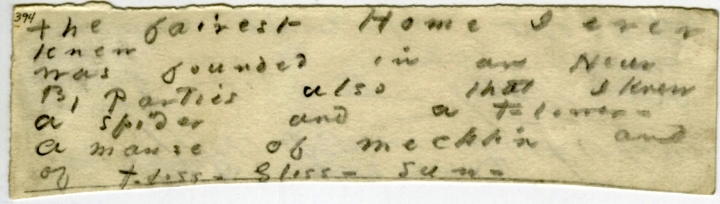 394
the fairest Home I ever
knew
was founded in an Hour
By Parties also that I knew
a spider and a Flower -
a manse of mechlin and
of Floss - Gloss - Sun -